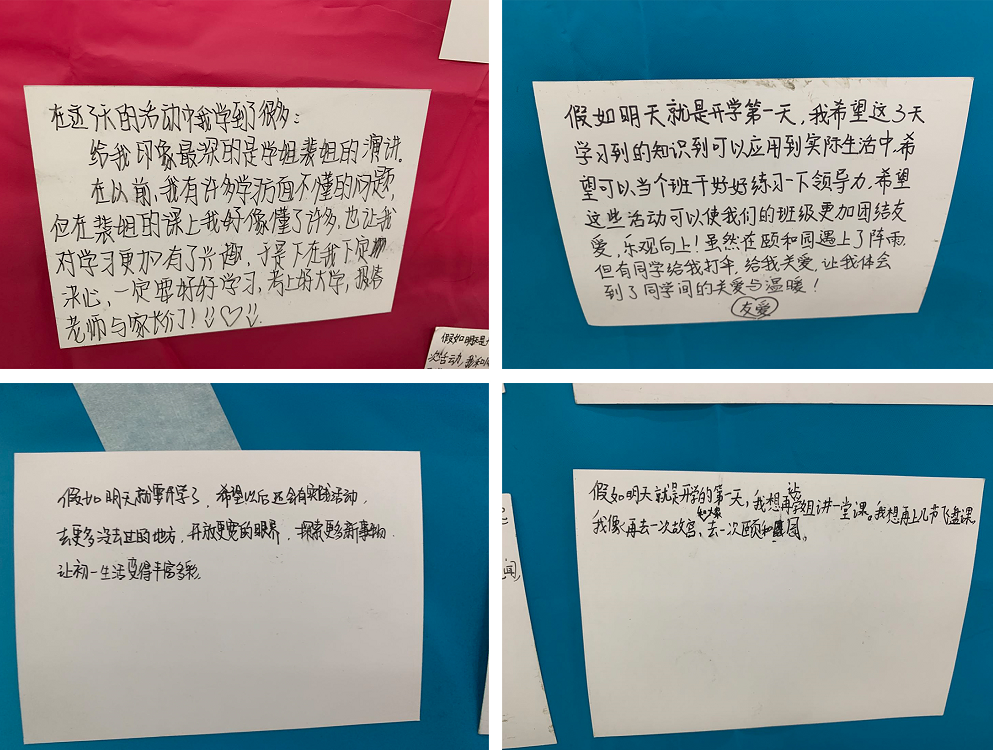 在这3天的活动中我学到了很多：
给我印象最深的是学姐裴姐的演讲.
在以前,我有许多学习方面不懂的问题,
但在裴姐的课上我好像懂了许多,也让我
对学习更加有了兴趣,于是下在我下定
决心,一定要好好学习,考上好大学,报信
老师与家长们!
假如明天是
次活动,我和
假如明天就是开学第一天,我希望这3天
学习到的知识到可以应用到实际生活中,希
望可以当个班干好好练习一下领导力,希望
这些活动可以使我们的班级更加团结友
爱,乐观向上!虽然在颐和园遇上了阵雨,
但有同学给我打伞,给我关爱,让我体会
到了同学间的关爱与温暖!
友爱
假如明天就要开学了,希望以后还会有实践活动,
去更多没去过的地方,开放更宽的眼界,探索更多新事物,
让初一生活变得丰富多彩.
假如明天就是开学的第一天,我想再给学姐讲一堂课。我想再上几节飞盘课.
我像再去一次故宫、去一次颐和园。
间,